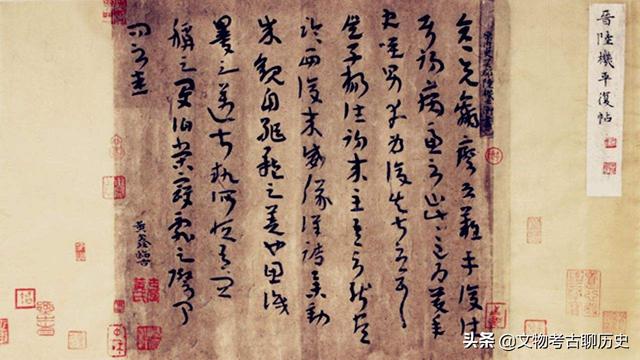 晉陸機平復帖
彦先羸瘵恐難平復往
屬初病慮不止此此已為慶承
使唯男幸為復失前憂耳
吳子楊往初來主吾不能盡
臨西復來威儀詳跱舉動
成觀自軀體之美也思識
量之邁前執所恆有宜
稱之夏伯榮寇亂之際聞
問不悉
头条 @文物考古聊历史